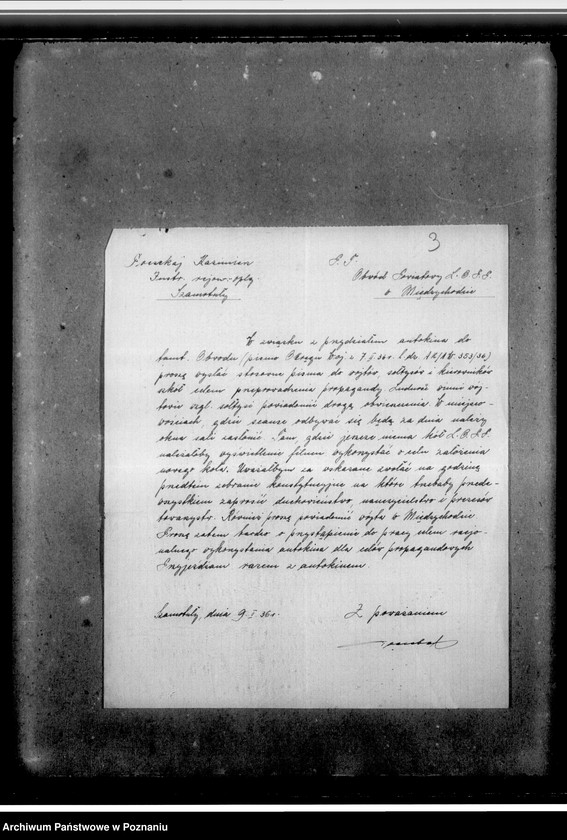 3
Kazimierz
Instr. rejon.
Szamotuły
P. T.
Obwód Powiatowy L.O.P.P.
w Międzychodzie
W związku z przydziałem autokina do
tamt. Obwodu (pismo Okręgu Woj. z 7.I.36r.
proszę wysłać stosowne pisma do wójtów, sołtysów i kierowników
szkół celem przeprowadzenia propagandy. Ludność winni wój-
towie wzgl. sołtysi powiadomić drogą obwieszczenia. W miejsco-
wościach, gdzie seanse odbywać się będą za dnia należy
okna sali zasłonić. Tam, gdzie jeszcze niema kół L.O.P.P.
należałoby wyświetlenie filmu wykorzystać w celu założenia
nowego koła. Uważałbym za wskazane zwołać na godzinę
przedtem zebranie konstytucyjne na które trzeba by przede-
wszystkiem zaprosić duchowieństwo, nauczycielstwo i prezesów
towarzystw. Również proszę powiadomić wójta w Międzychodzie
Proszę zatem bardzo o przystąpienie do pracy celem racjo-
nalnego wykorzystania autokina dla celów propagandowych
Przyjeżdżam razem z autokinem.
Szamotuły, dnia 9.I.36r.
Z poważaniem
Archiwum Państwowe w Poznaniu